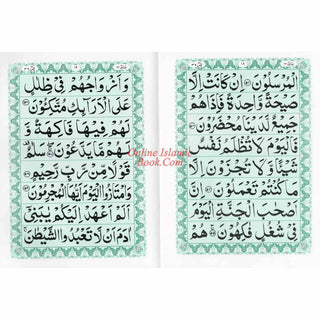 الْمُرْسَلُوْنَ ۝ اِنْ كَانَتْ اِلَّا
صَيْحَةً وَّاحِدَةً فَاِذَا هُمْ
جَمِيْعٌ لَّدَيْنَا مُحْضَرُوْنَ ۝
فَالْيَوْمَ لَا تُظْلَمُ نَفْسٌ
شَيْئًا وَّلَا تُجْزَوْنَ اِلَّا
مَا كُنْتُمْ تَعْمَلُوْنَ ۝ اِنَّ
اَصْحٰبَ الْجَنَّةِ الْيَوْمَ
فِىْ شُغُلٍ فٰكِهُوْنَ ۝ هُمْ
وَاَزْوَاجُهُمْ فِىْ ظِلٰلٍ
عَلَى الْاَرَآئِكِ مُتَّكِـُٔوْنَ ۝
لَهُمْ فِيْهَا فَاكِهَةٌ وَّ
لَهُمْ مَّا يَدَّعُوْنَ ۝ سَلٰمٌ
قَوْلًا مِّنْ رَّبٍّ رَّحِيْمٍ ۝
وَامْتَازُوا الْيَوْمَ اَيُّهَا الْمُجْرِمُوْنَ ۝
اَلَمْ اَعْهَدْ اِلَيْكُمْ يٰبَنِىْٓ
اٰدَمَ اَنْ لَّا تَعْبُدُوا الشَّيْطٰنَ
Online Islamic
Book.Com